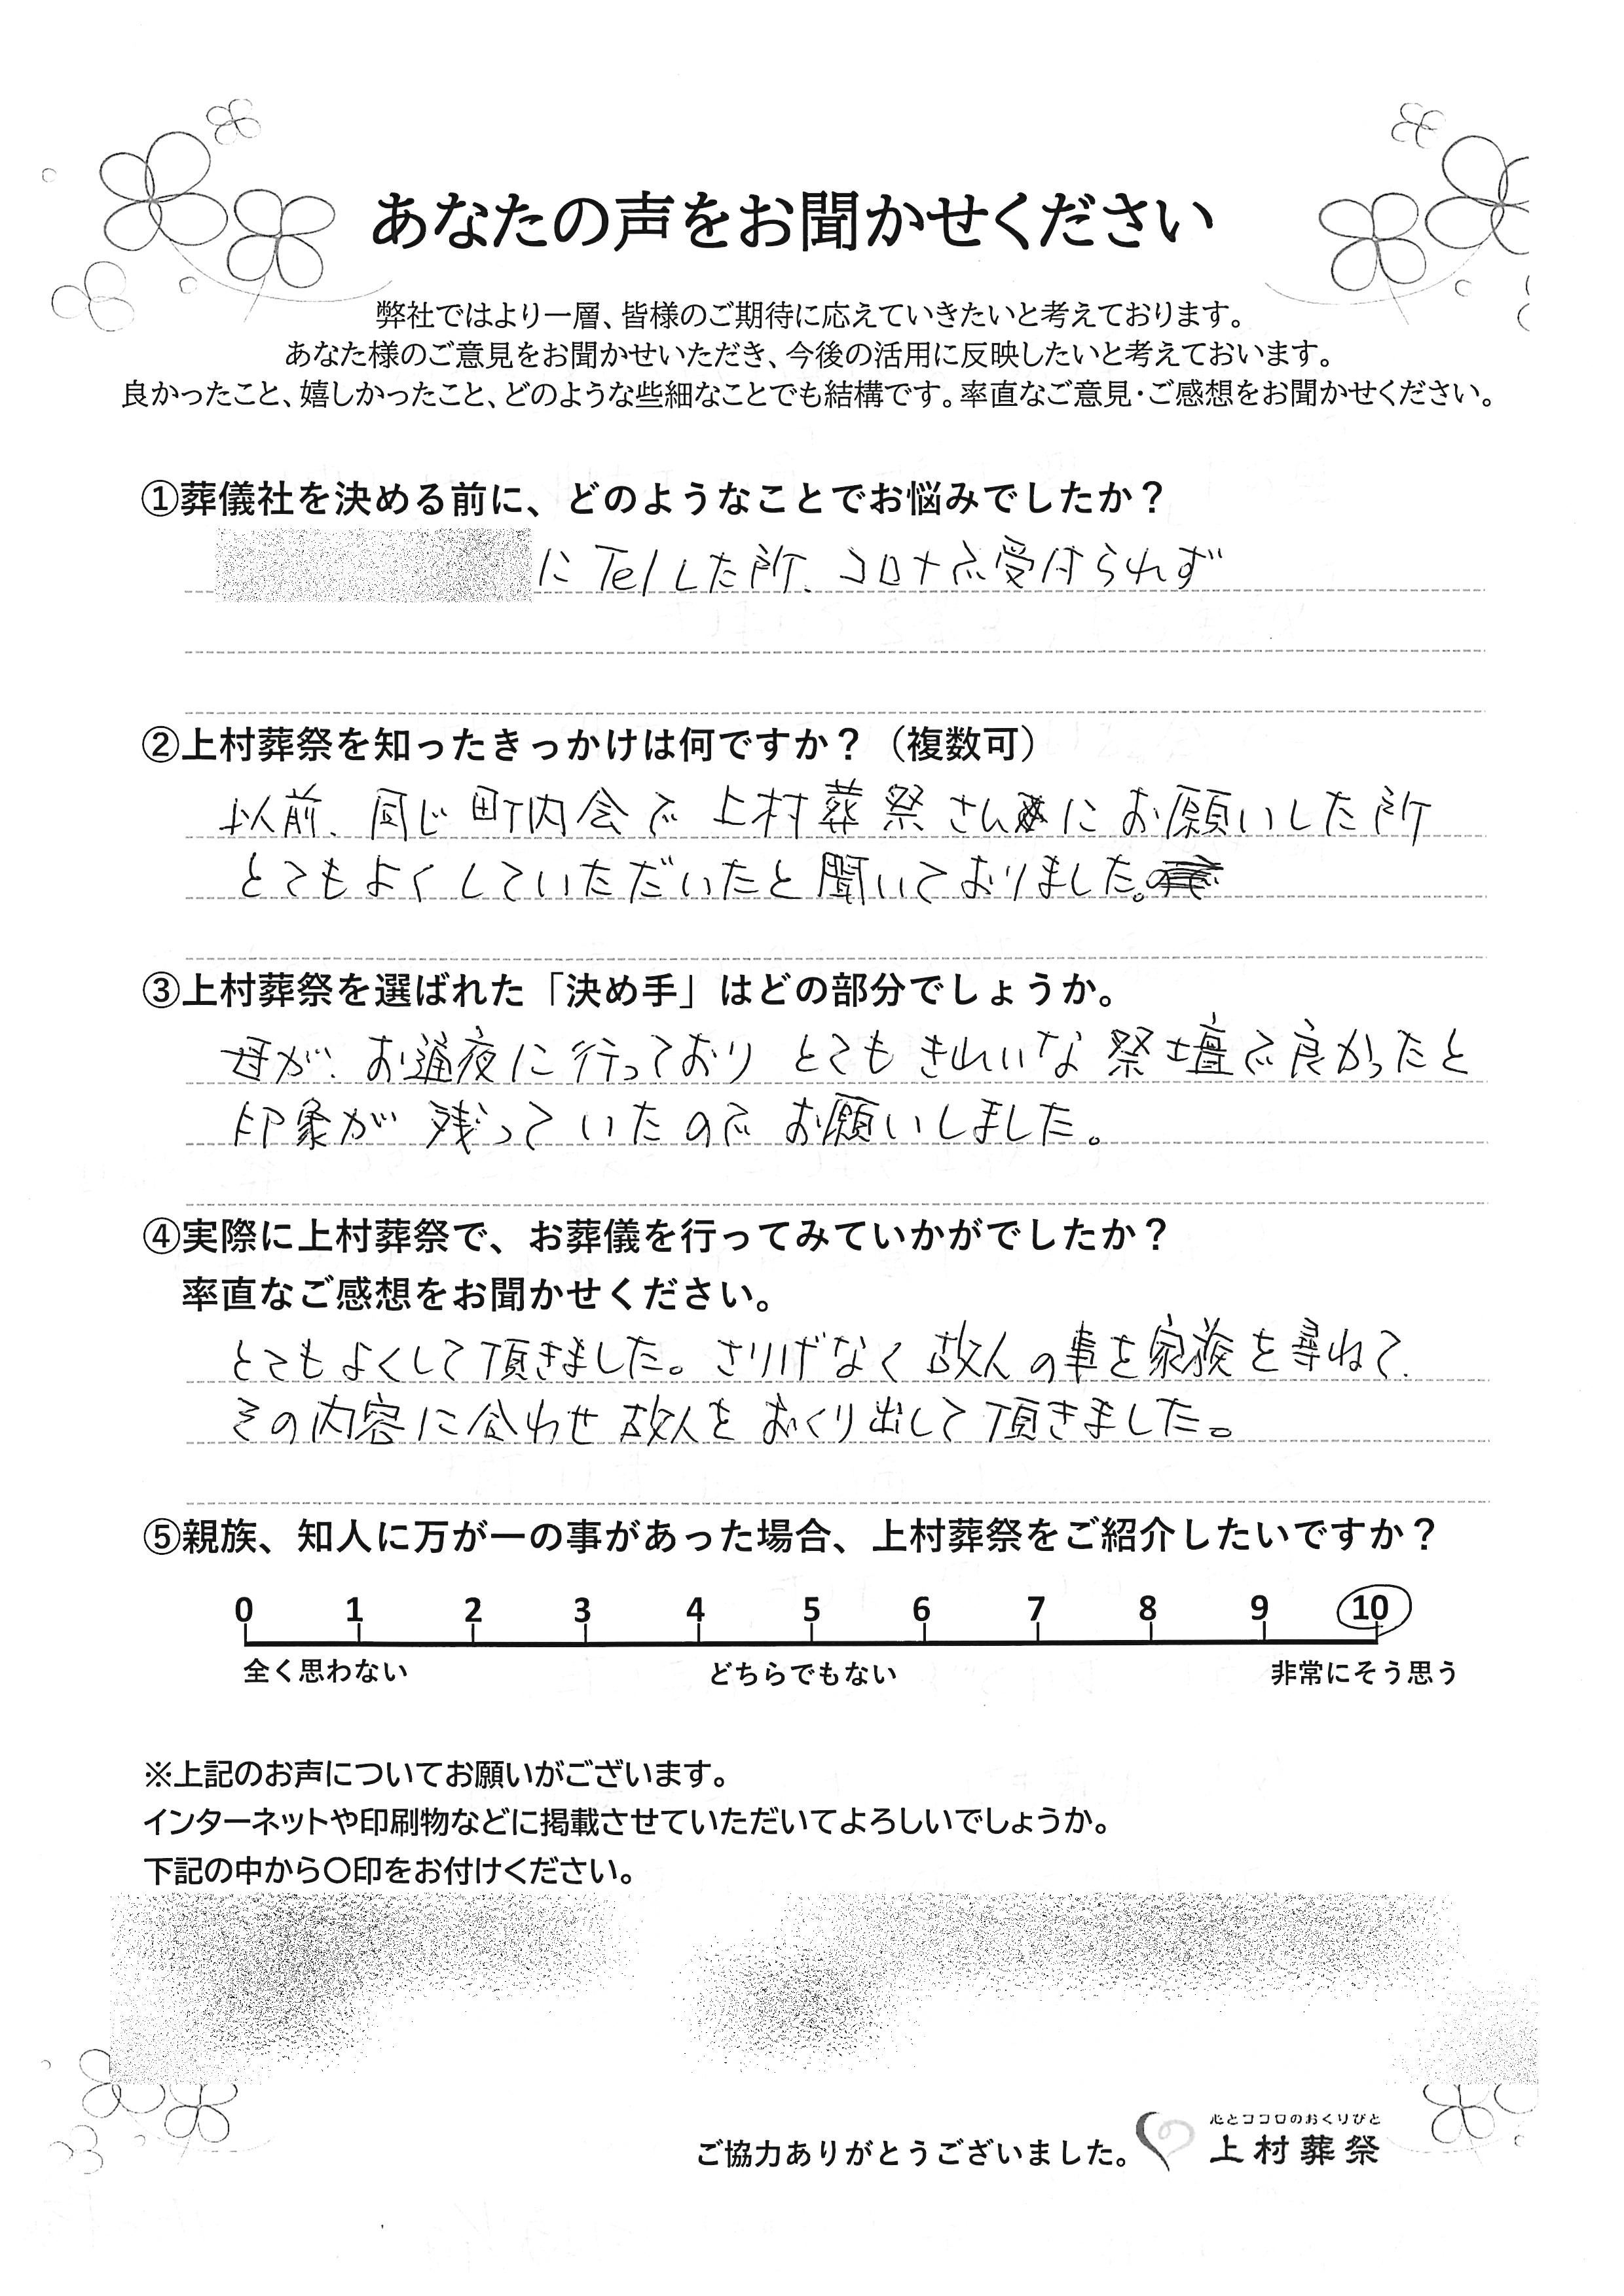 あなたの声をお聞かせください
弊社ではより一層、皆様のご期待に応えていきたいと考えております。
あなた様のご意見をお聞かせいただき、今後の活用に反映したいと考えておいます。
良かったこと、嬉しかったこと、どのような些細なことでも結構です。率直なご意見・ご感想をお聞かせください。
①葬儀社を決める前に、どのようなことでお悩みでしたか？
にTelした所、コロナで受付られず
②上村葬祭を知ったきっかけは何ですか？（複数可）
以前、同じ町内会で上村葬祭さんにお願いした所
とてもよくしていただいたと聞いておりました。
③上村葬祭を選ばれた「決め手」はどの部分でしょうか。
母が、お通夜に行っており とてもきれいな祭壇で良かったと
印象が残っていたのでお願いしました。
④実際に上村葬祭で、お葬儀を行ってみていかがでしたか？
率直なご感想をお聞かせください。
とてもよくして頂きました。さりげなく故人の事を家族を尋ねて、
その内容に合わせ故人をおくり出して頂きました。
⑤親族、知人に万が一の事があった場合、上村葬祭をご紹介したいですか？
0 1 2 3 4 5 6 7 8 9 10
全く思わない どちらでもない 非常にそう思う
※上記のお声についてお願いがございます。
インターネットや印刷物などに掲載させていただいてよろしいでしょうか。
下記の中から〇印をお付けください。
心とココロのおくりびと
ご協力ありがとうございました。 上村葬祭